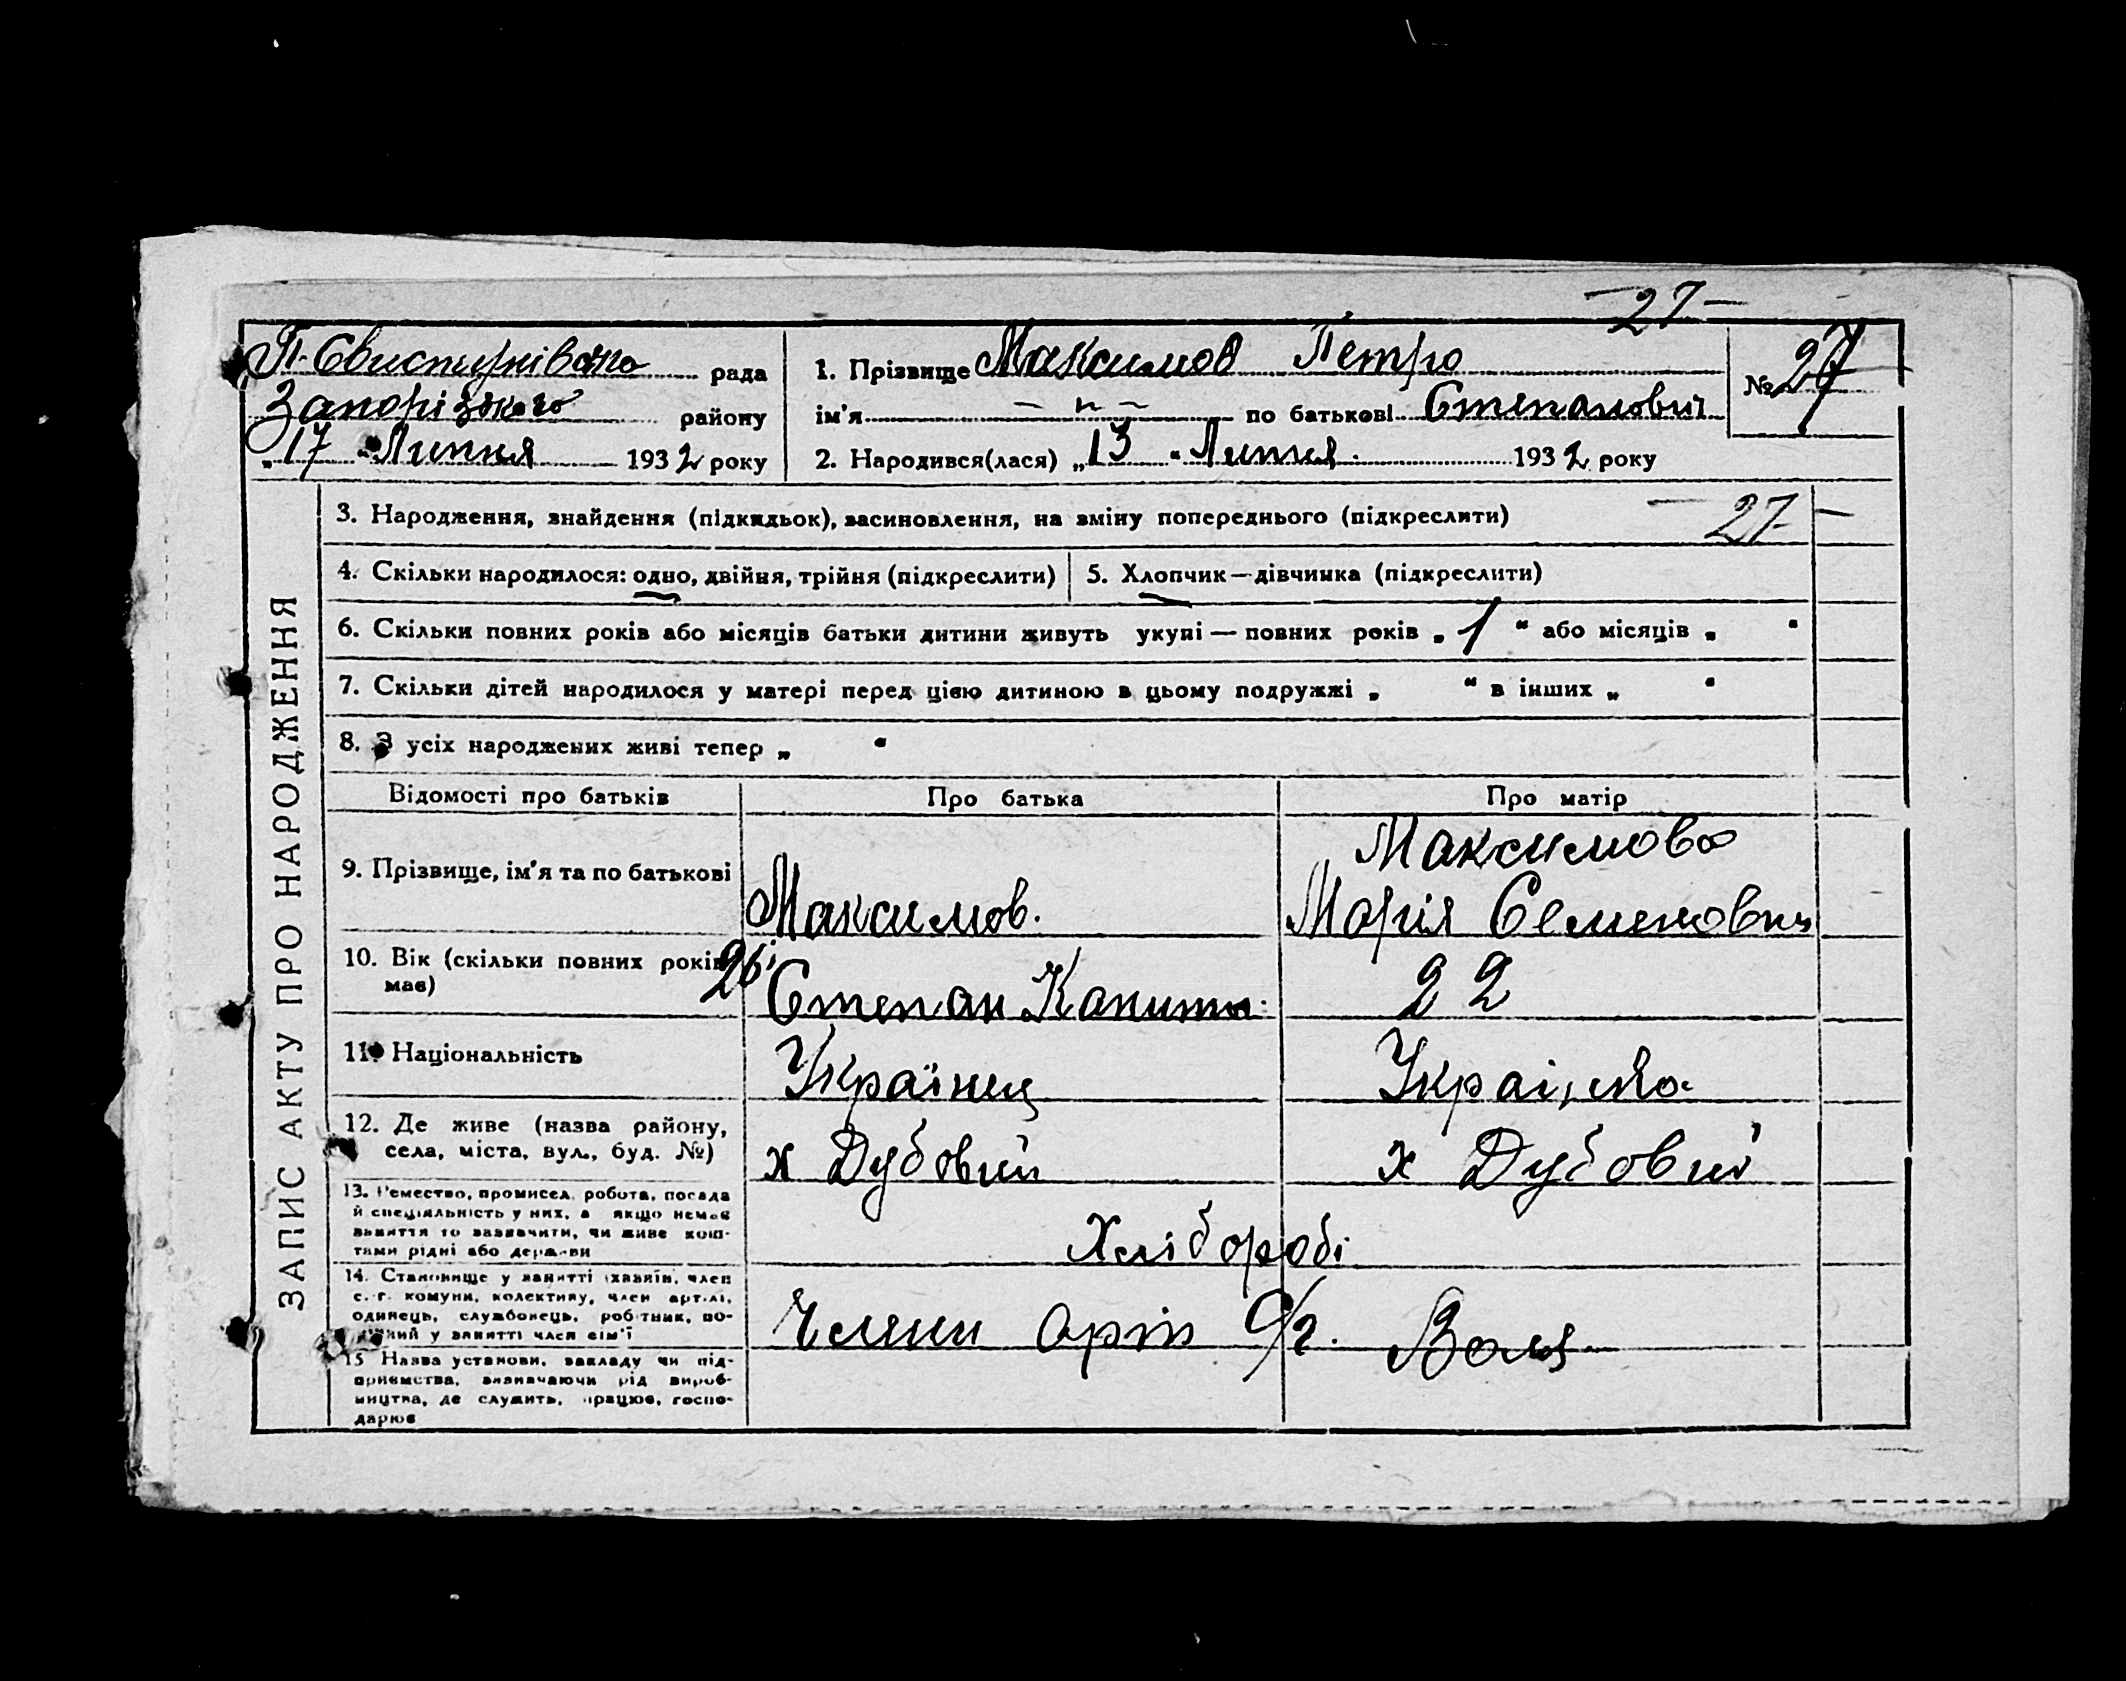 — 27 —
П. Свистунівська рада
Запорізького району
„17“ Липня 1932 року
1. Прізвище Максимов Петро
ім'я — „ — по батькові Степанович
2. Народився(лася) „13“ Липня 1932 року
№ 27
ЗАПИС АКТУ ПРО НАРОДЖЕННЯ
3. Народження, знайдення (підкидьок), засиновлення, на зміну попереднього (підкреслити)
— 27 —
4. Скільки народилося: одно, двійня, трійня (підкреслити)
5. Хлопчик — дівчинка (підкреслити)
6. Скільки повних років або місяців батьки дитини живуть укупі — повних років „1“ або місяців „ “
7. Скільки дітей народилося у матері перед цією дитиною в цьому подружжі „ “ в інших „ “
8. З усіх народжених живі тепер „ “
Відомості про батьків Про батька Про матір
9. Прізвище, ім'я та по батькові
Максимов.
Максимова
Марія Семеновна
10. Вік (скільки повних років
має)
26
Степан
22
11. Національність
Українец
Українка
12. Де живе (назва району,
села, міста, вул., буд. №)
х Дубовий
х Дубовий
13. Ремество, промисел, робота, посада
й спеціяльність у них, а якщо немає
заняття то зазначити, чи живе кош-
тами рідні або держави
Хлібороби
14. Становище у занятті (хазяїн, член
с.-г. комуни, колективу, член артілі,
одинець, службовець, робітник, по-
у занятті член сім'ї
Члени С/г. Воля
15 Назва установи, закладу чи під-
приємства, визначаючи рід вироб-
ництва, де служить, працює, госпо-
дарює